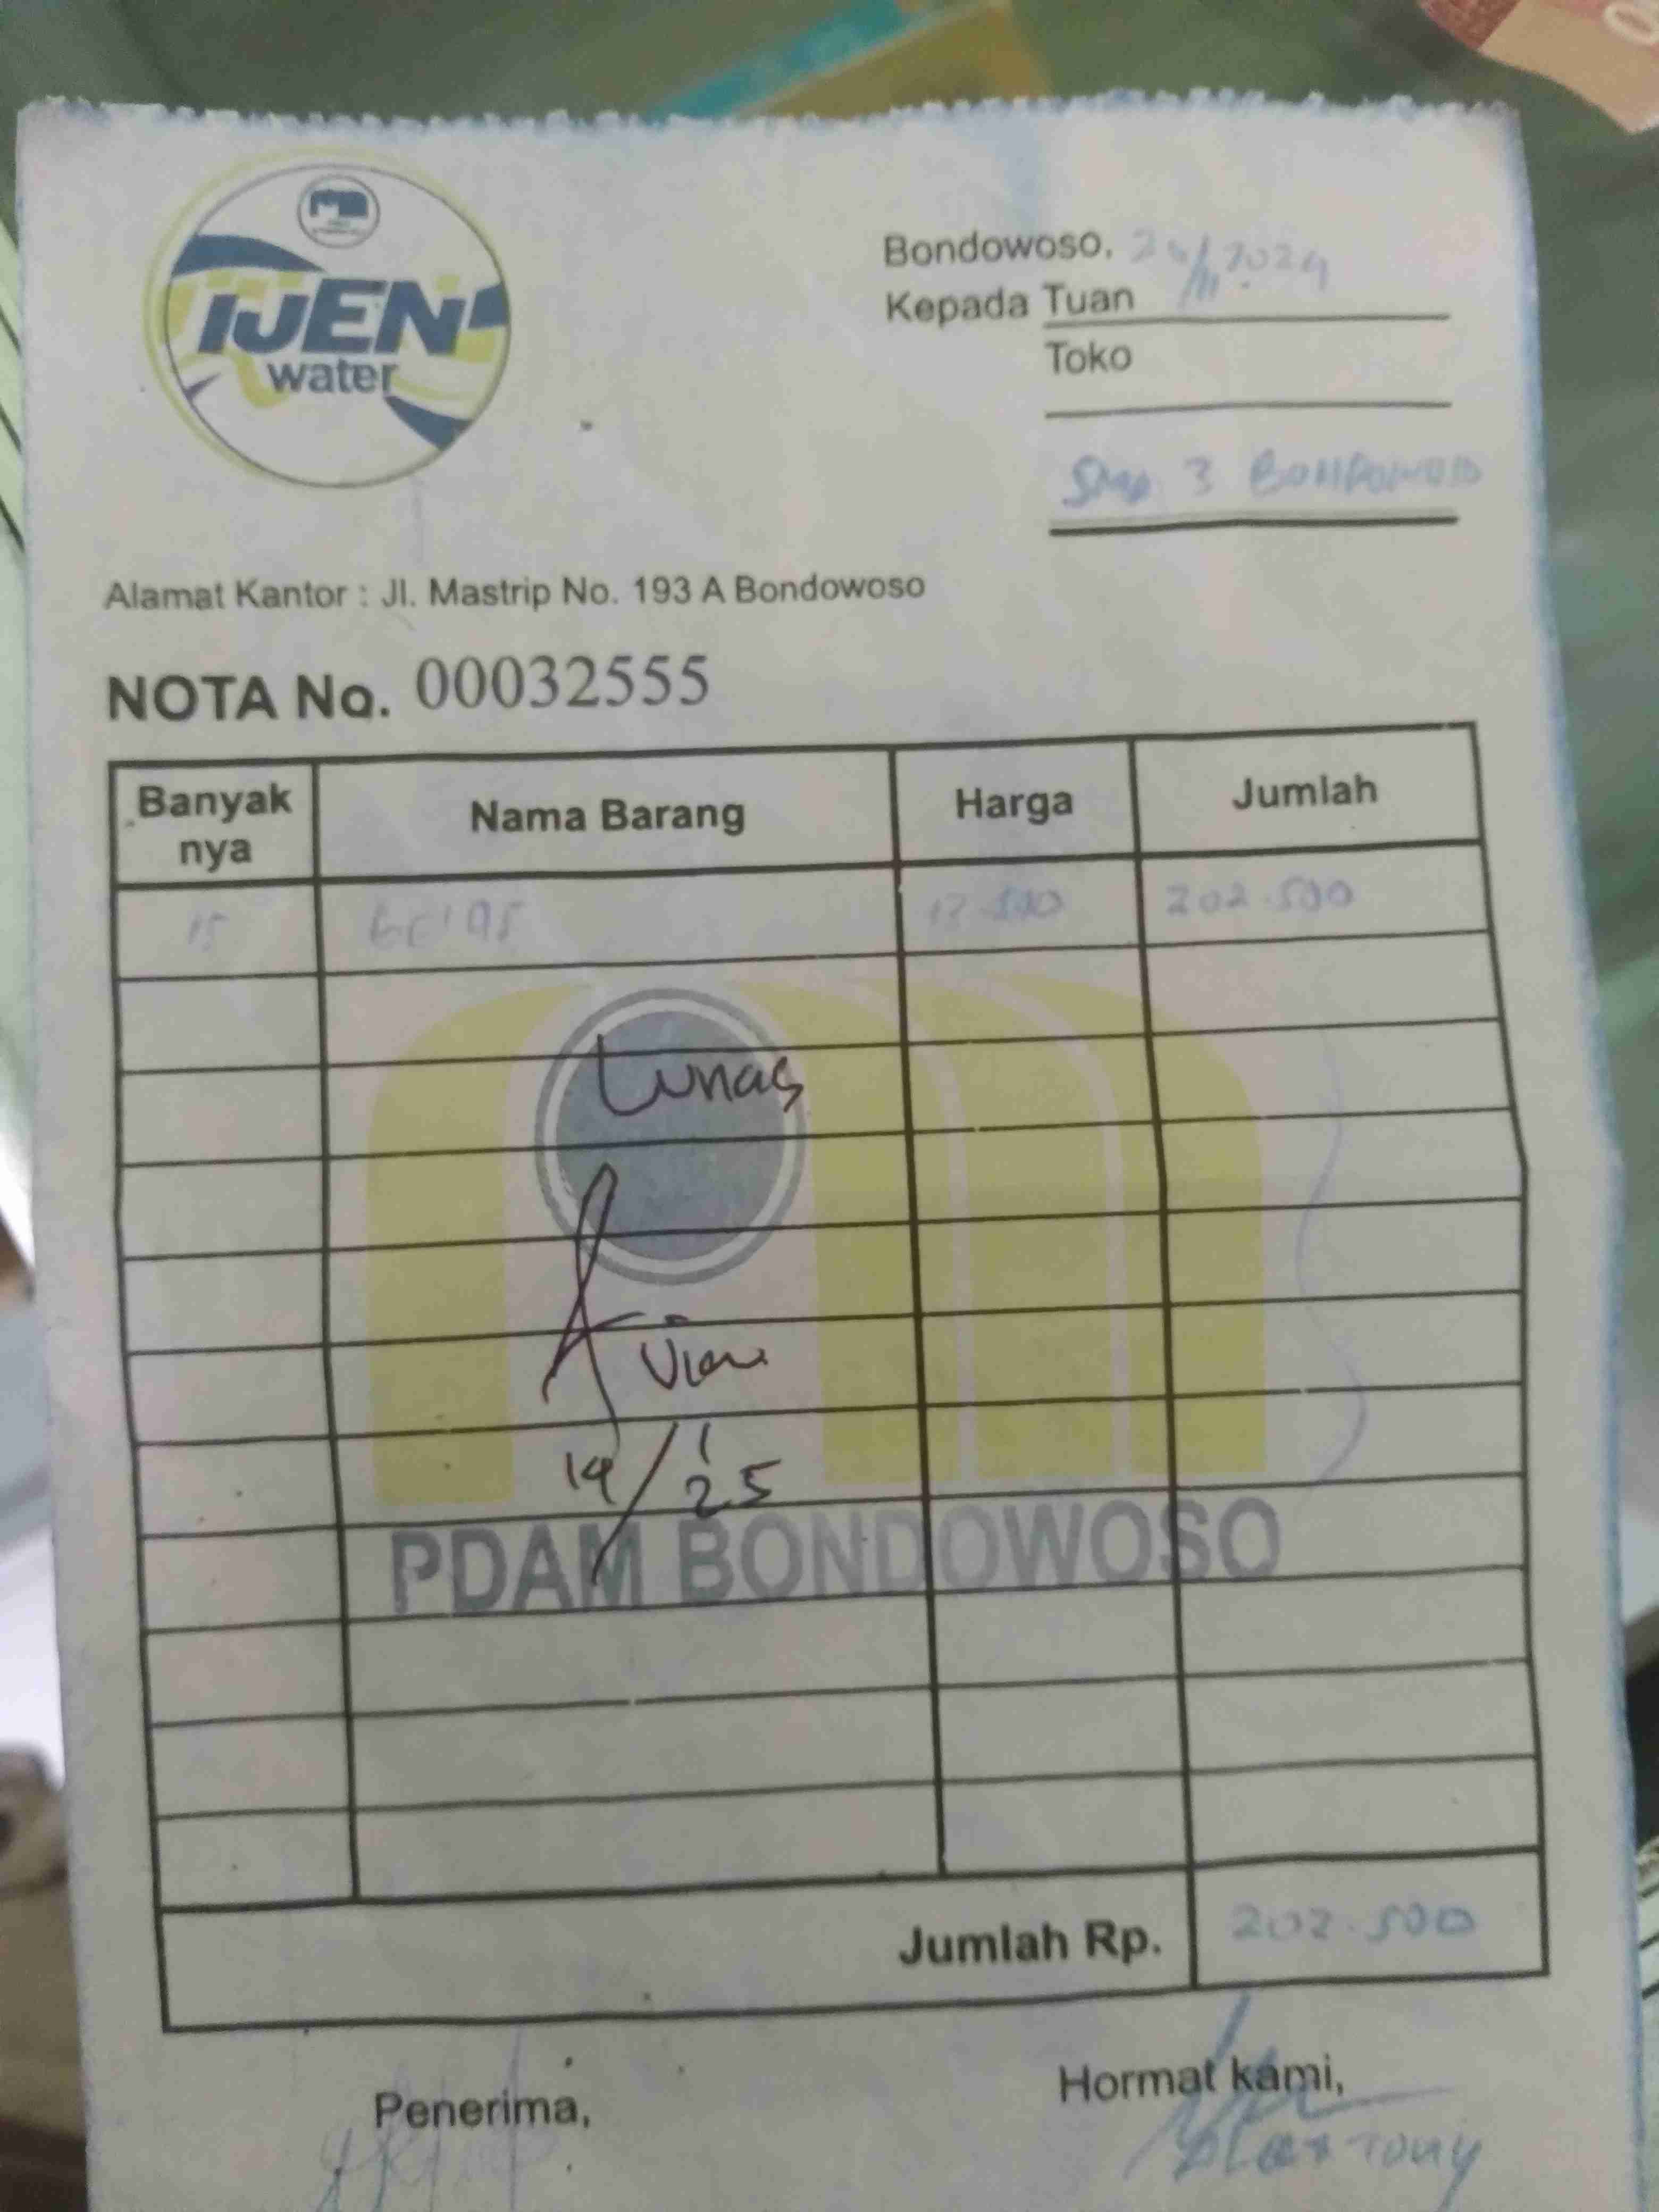 IJEN
water
Bondowoso, 2024
Kepada Tuan
Toko
3 BONDOWOSO
Alamat Kantor : Jl. Mastrip No. 193 A Bondowoso
NOTA No. 00032555
Banyak nya Nama Barang Harga Jumlah
15 13.500 202.500
Lunas
Vian
14/1 25
PDAM BONDOWOSO
Jumlah Rp. 202.500
Penerima,
Hormat kami,
Tony